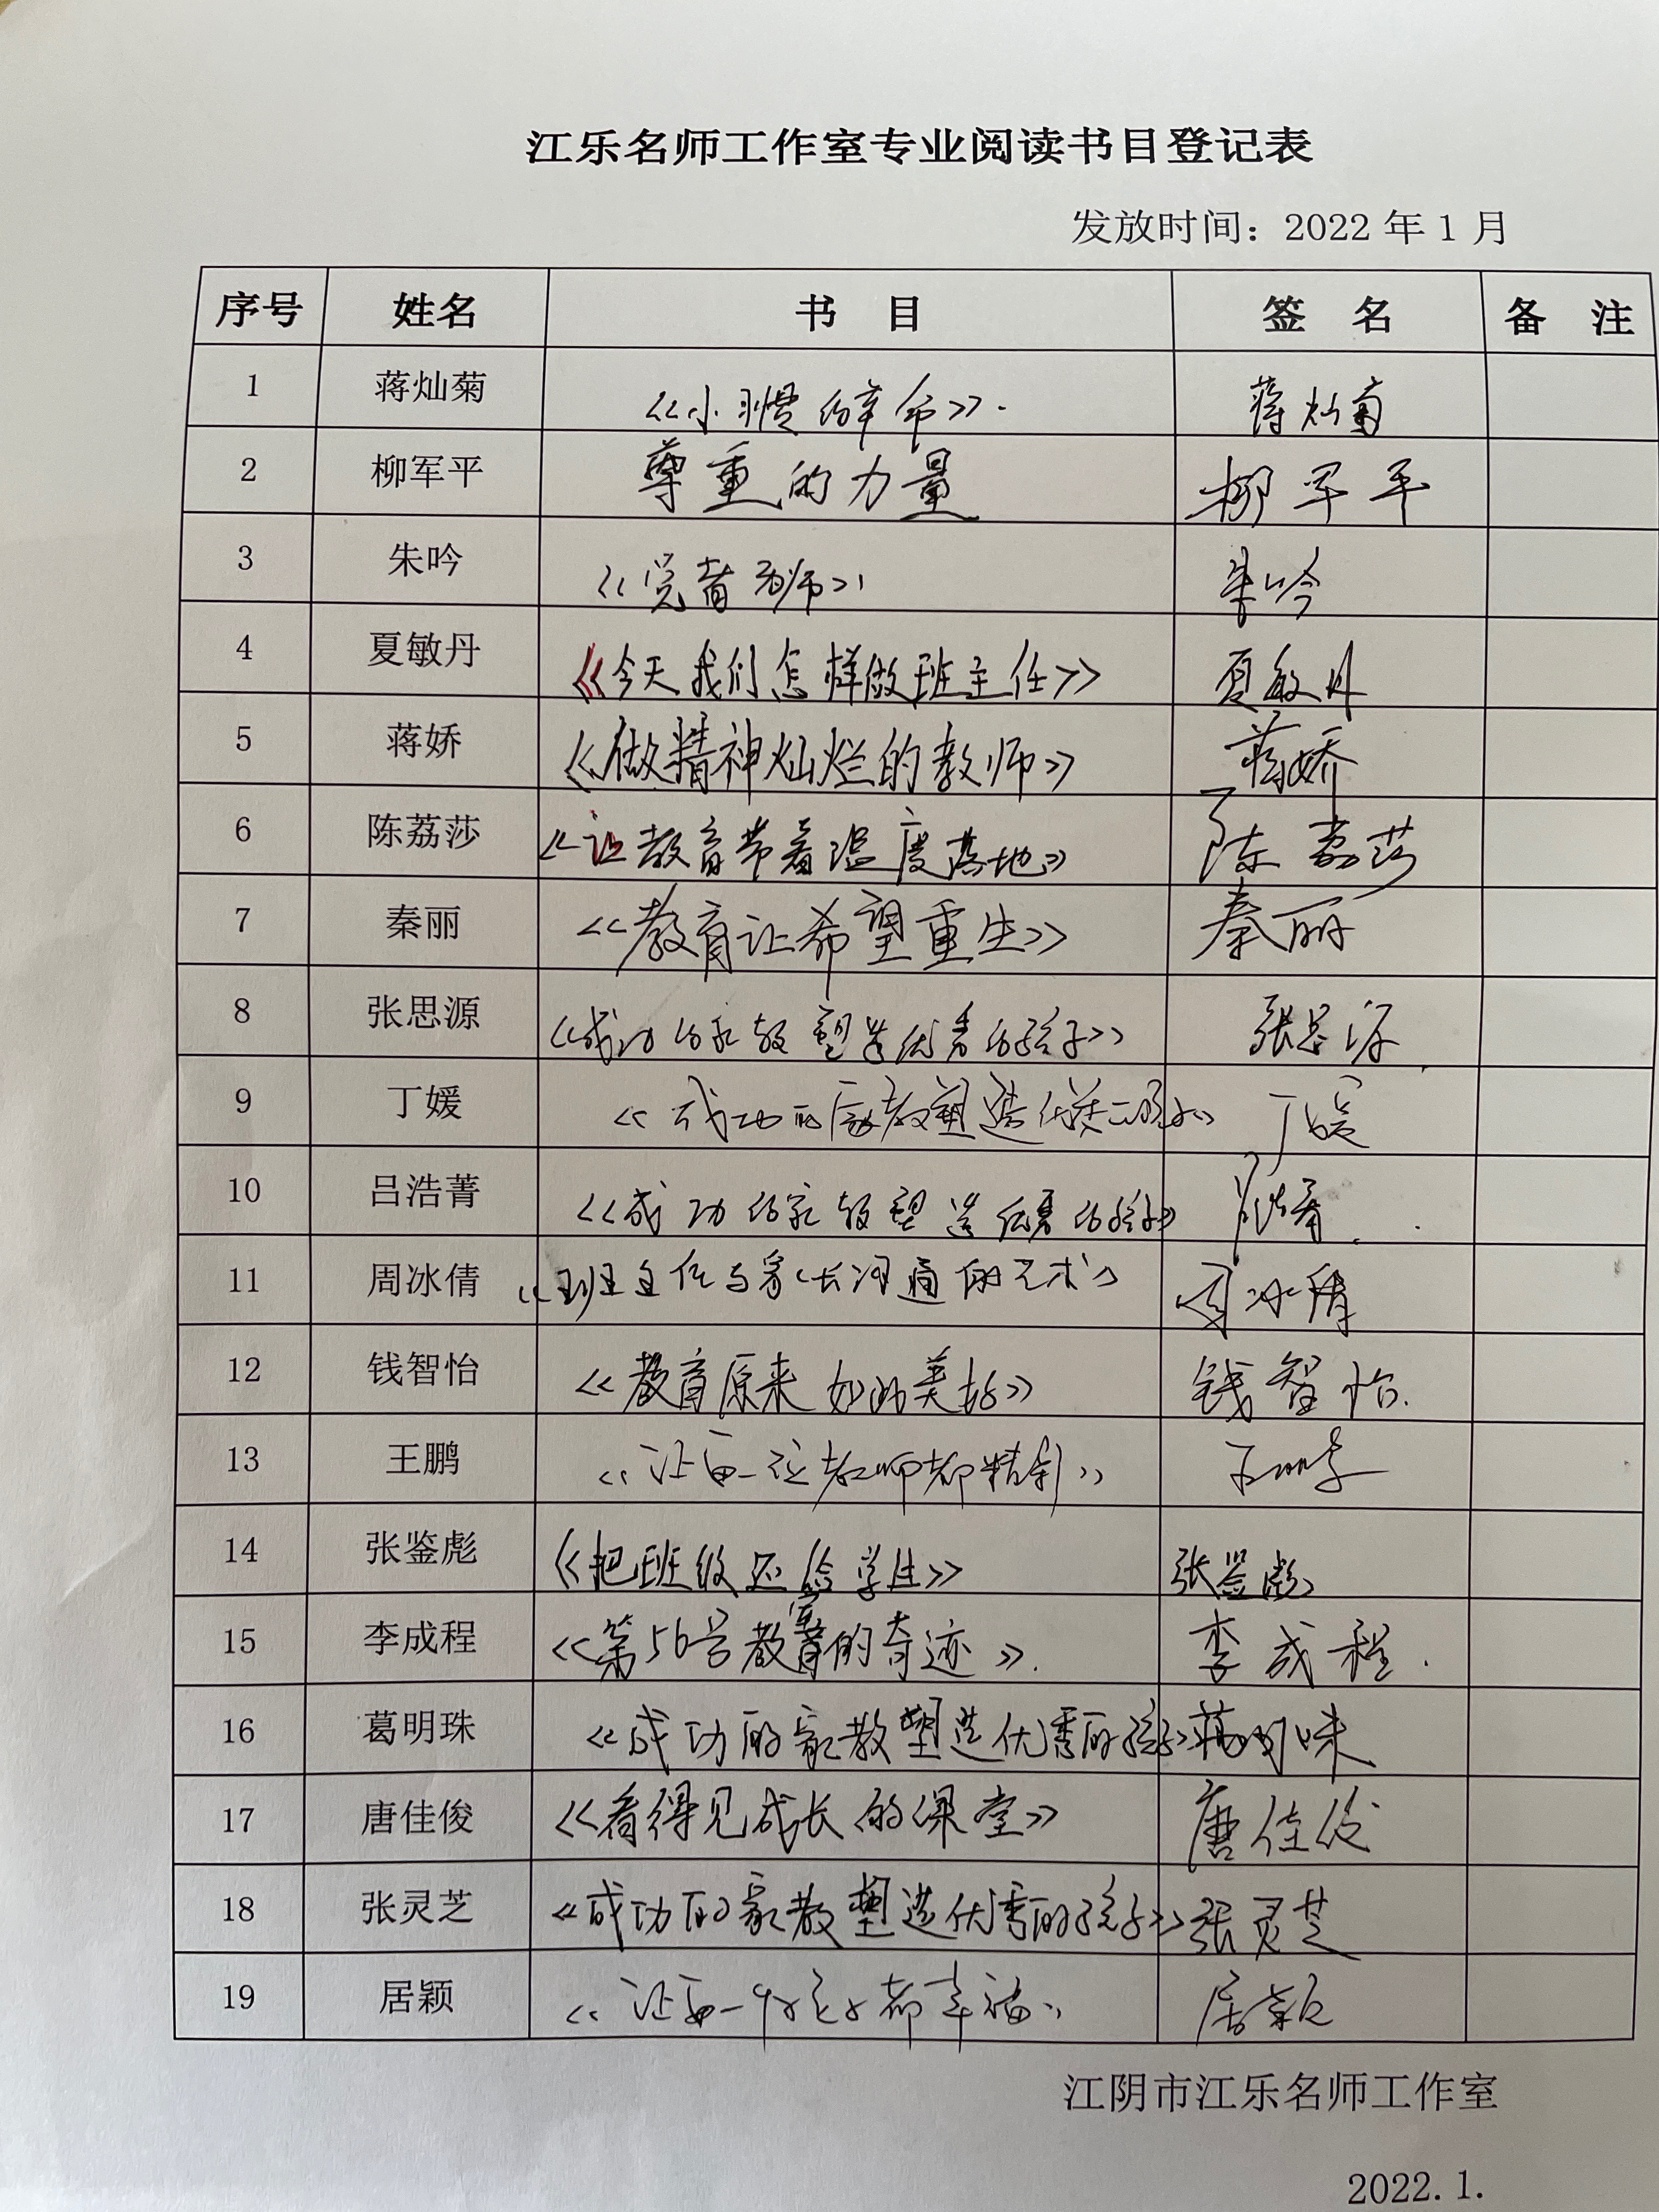 江乐名师工作室专业阅读书目登记表
发放时间：2022 年 1 月
序号 姓名 书 目 签 名 备 注
1 蒋灿菊 《小习惯的革命》. 蒋灿菊
2 柳军平 尊重的力量 柳军平
3 朱吟 《觉者为师》 朱吟
4 夏敏丹 《今天我们怎样做班主任》 夏敏丹
5 蒋娇 《做精神灿烂的教师》 蒋娇
6 陈荔莎 《让教育带着温度落地》 陈荔莎
7 秦丽 《教育让希望重生》 秦丽
8 张思源 《成功的家教塑造优秀的孩子》 张思源
9 丁媛 《成功的家教塑造优秀的孩子》 丁媛
10 吕浩菁 《成功的家教塑造优秀的孩子》 吕浩菁
11 周冰倩 《班主任与家长沟通的艺术》 周冰倩
12 钱智怡 《教育原来如此美好》 钱智怡.
13 王鹏 《让每一位教师都精彩》 王鹏
14 张鉴彪 《把班级还给学生》 张鉴彪
15 李成程 《第56号教室的奇迹》. 李成程.
16 葛明珠 《成功的家教塑造优秀的孩子》 葛明珠
17 唐佳俊 《看得见成长的课堂》 唐佳俊
18 张灵芝 《成功的家教塑造优秀的孩子》 张灵芝
19 居颖 《让每一个孩子都幸福》 居颖
江阴市江乐名师工作室
2022.1.